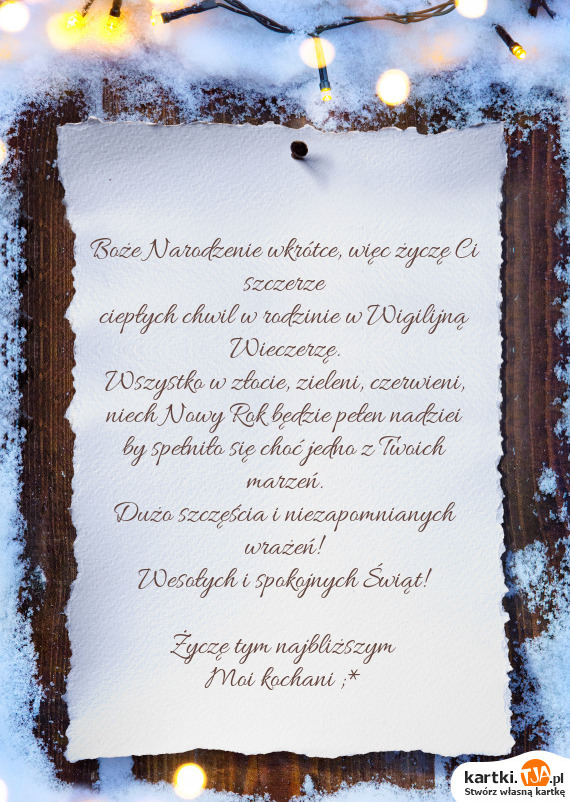 Boże Narodzenie wkrótce, więc życzę Ci
szczerze
ciepłych chwil w rodzinie w Wigilijną
Wieczerzę.
Wszystko w złocie, zieleni, czerwieni,
niech Nowy Rok będzie pełen nadziei
by spełniło się choć jedno z Twoich
marzeń.
Dużo szczęścia i niezapomnianych
wrażeń!
Wesołych i spokojnych Świąt!
Życzę tym najbliższym
Moi kochani ;*
kartki.TJA.pl
Stwórz własną kartkę